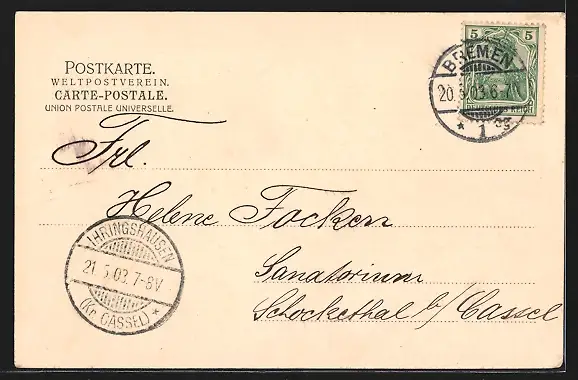 POSTKARTE.
WELTPOSTVEREIN.
CARTE-POSTALE.
UNION POSTALE UNIVERSELLE.
5 5
DEUTSCHES REICH
BREMEN
20.5.03.6-7N
* 1 *
Frl.
Helene Focken
Sanatorium
Schockethal b/Cassel
IHRINGSHAUSEN
21.5.03.7-8V
(Kr. CASSEL) *